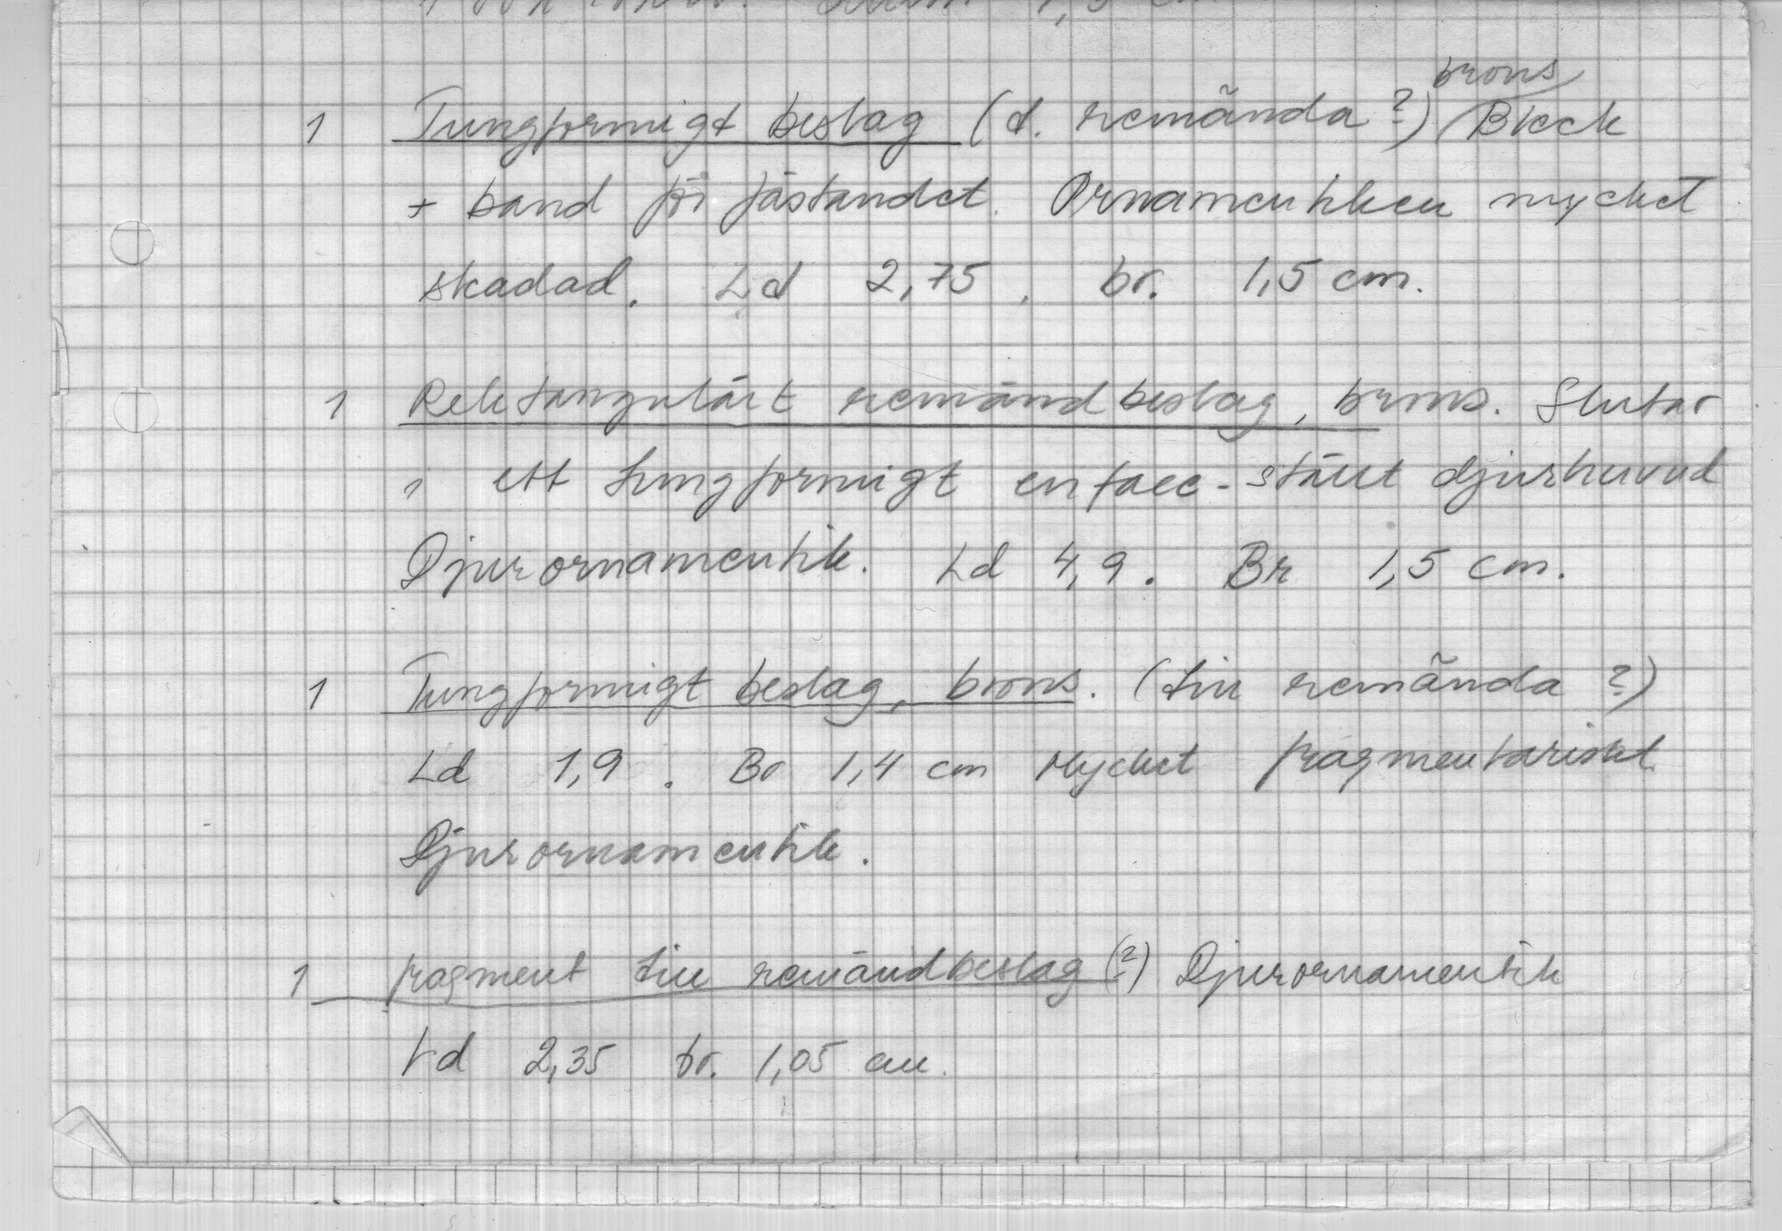 1 Tungformigt beslag (t. remända?) brons Bleck
+ band för fästandet. Ornamentiken mycket
skadad. Ld 2,75, br. 1,5 cm.
1 Rektangulärt remändbeslag, brons. Slutar
i ett tungformigt enface-ställt djurhuvud
Djurornamentik. Ld 4,9. Br 1,5 cm.
1 Tungformigt beslag, brons. (till remända?)
Ld 1,9. Br 1,4 cm Mycket fragmentariskt
Djurornamentik.
1 fragment till remändbeslag (?) Djurornamentik
Ld 2,35 br. 1,05 cm.